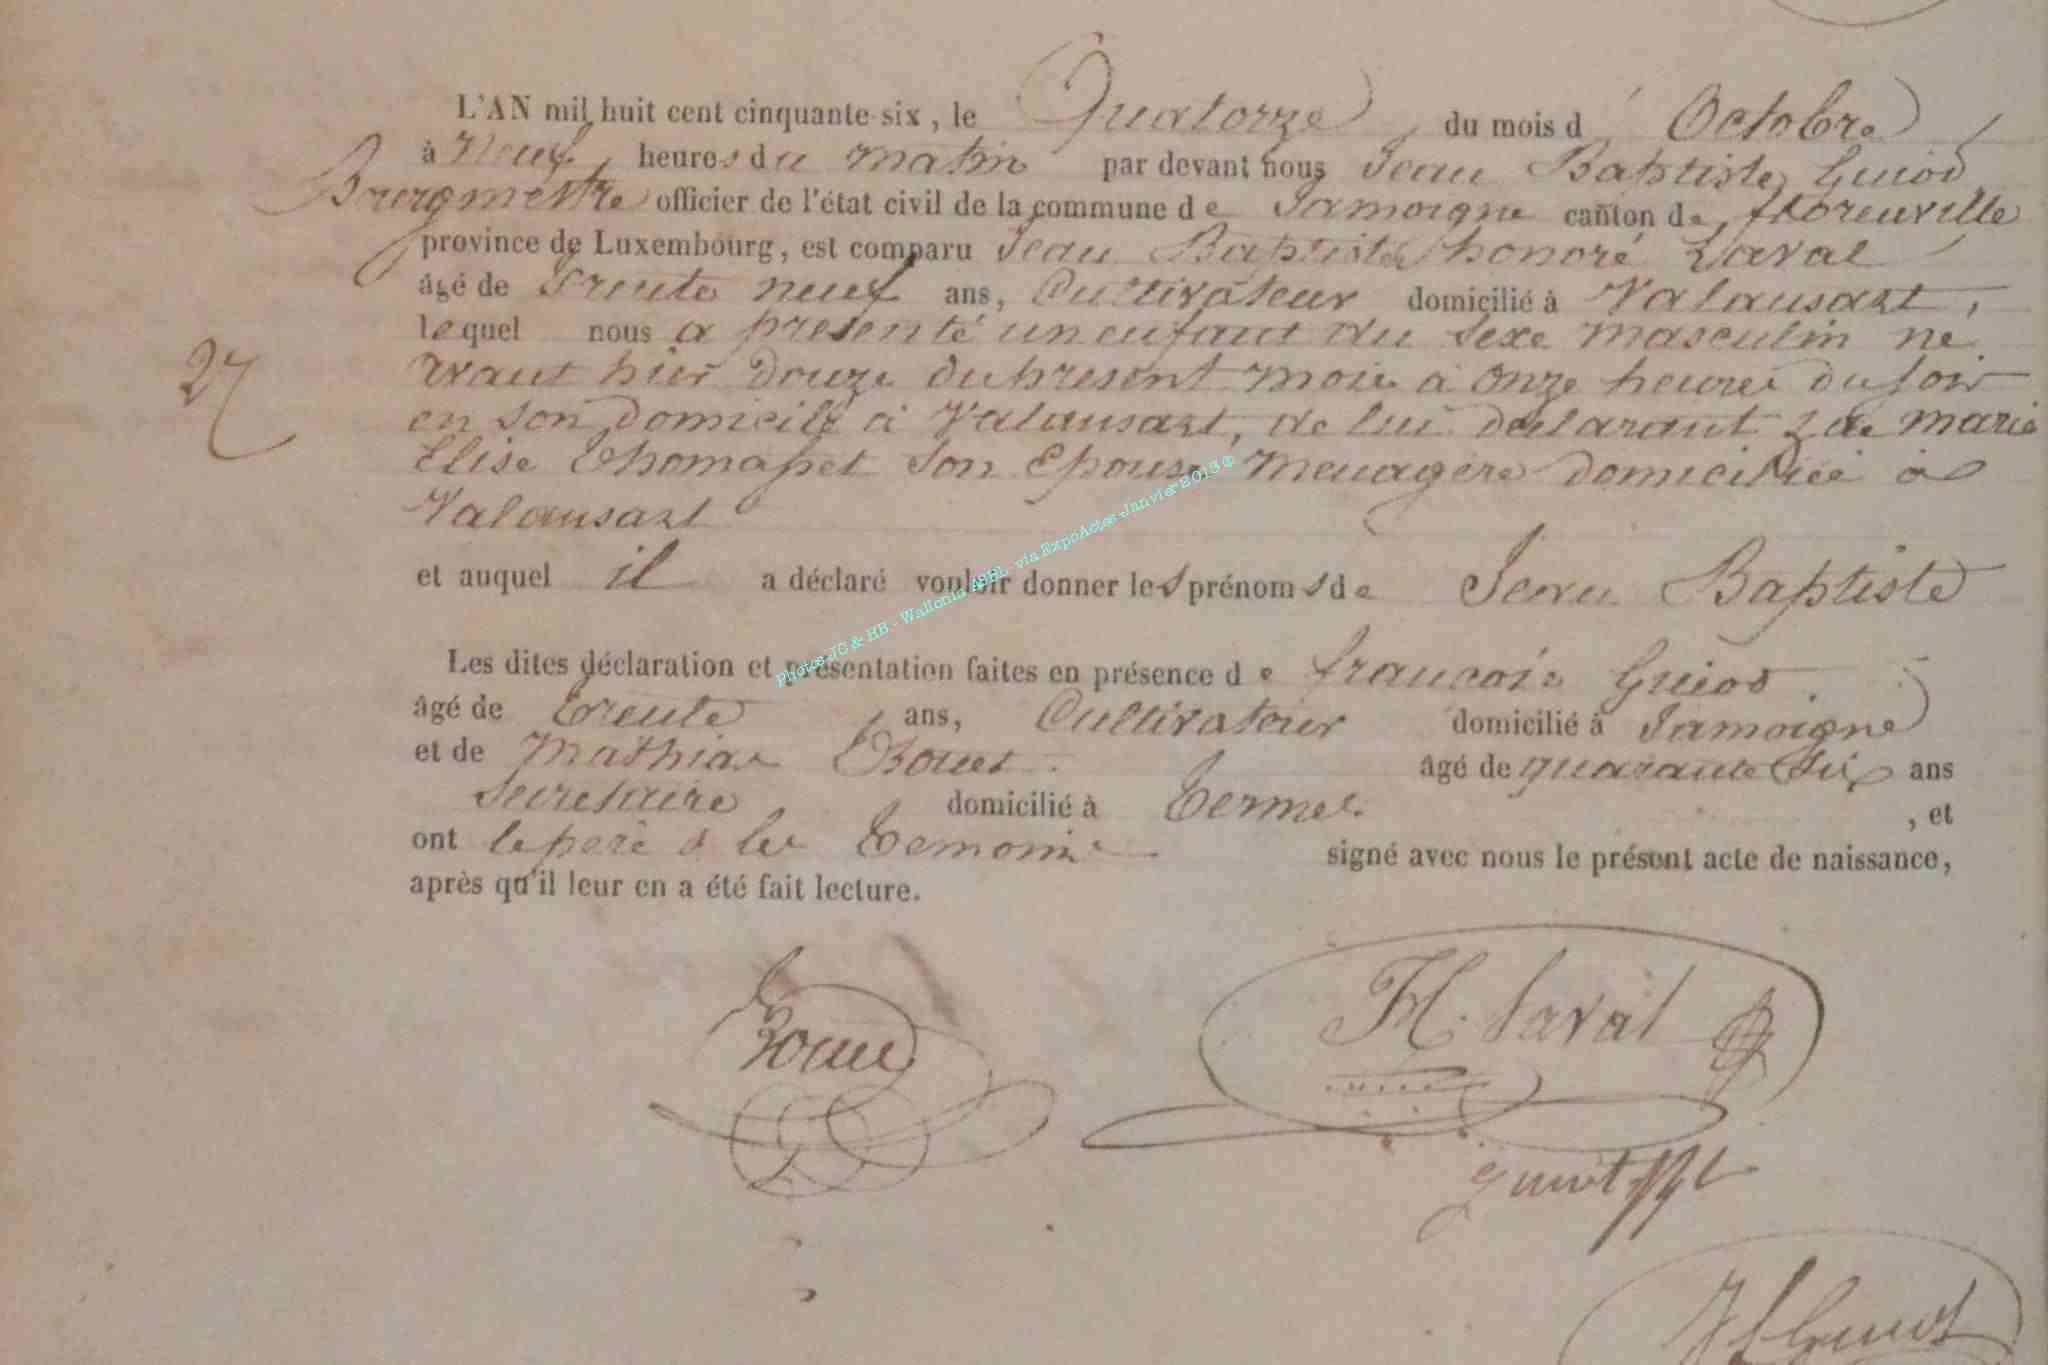 L'AN mil huit cent cinquante-six, le Quatorze du mois d' Octobre
à Neuf heures du matin par devant nous Jean Baptiste Guiot
Bourgmestre officier de l'état civil de la commune de Jamoigne canton de florenville
province de Luxembourg, est comparu Jean Baptiste honoré Laval
âgé de Trente neuf ans, Cultivateur domicilié à Valansart,
lequel nous a présenté un enfant du sexe masculin né
avant hier douze du présent mois à onze heures du soir
en son domicile à Valansart, de lui déclarant & de marie
Elise Thomasset son Epouse menagère domiciliée à
Valansart
et auquel il a déclaré vouloir donner les prénoms de Jean Baptiste
Les dites déclaration et présentation faites en présence de francois Guiot
âgé de trente ans, Cultivateur domicilié à Jamoigne
et de Mathias âgé de quarante six ans
secretaire domicilié à Termes , et
ont le père & les temoins signé avec nous le présent acte de naissance,
après qu'il leur en a été fait lecture.
27
H. Laval
guiot
Guiot
Photos JC & HB - Wallonia ASBL via ExpoActes Janvier 2013 ©